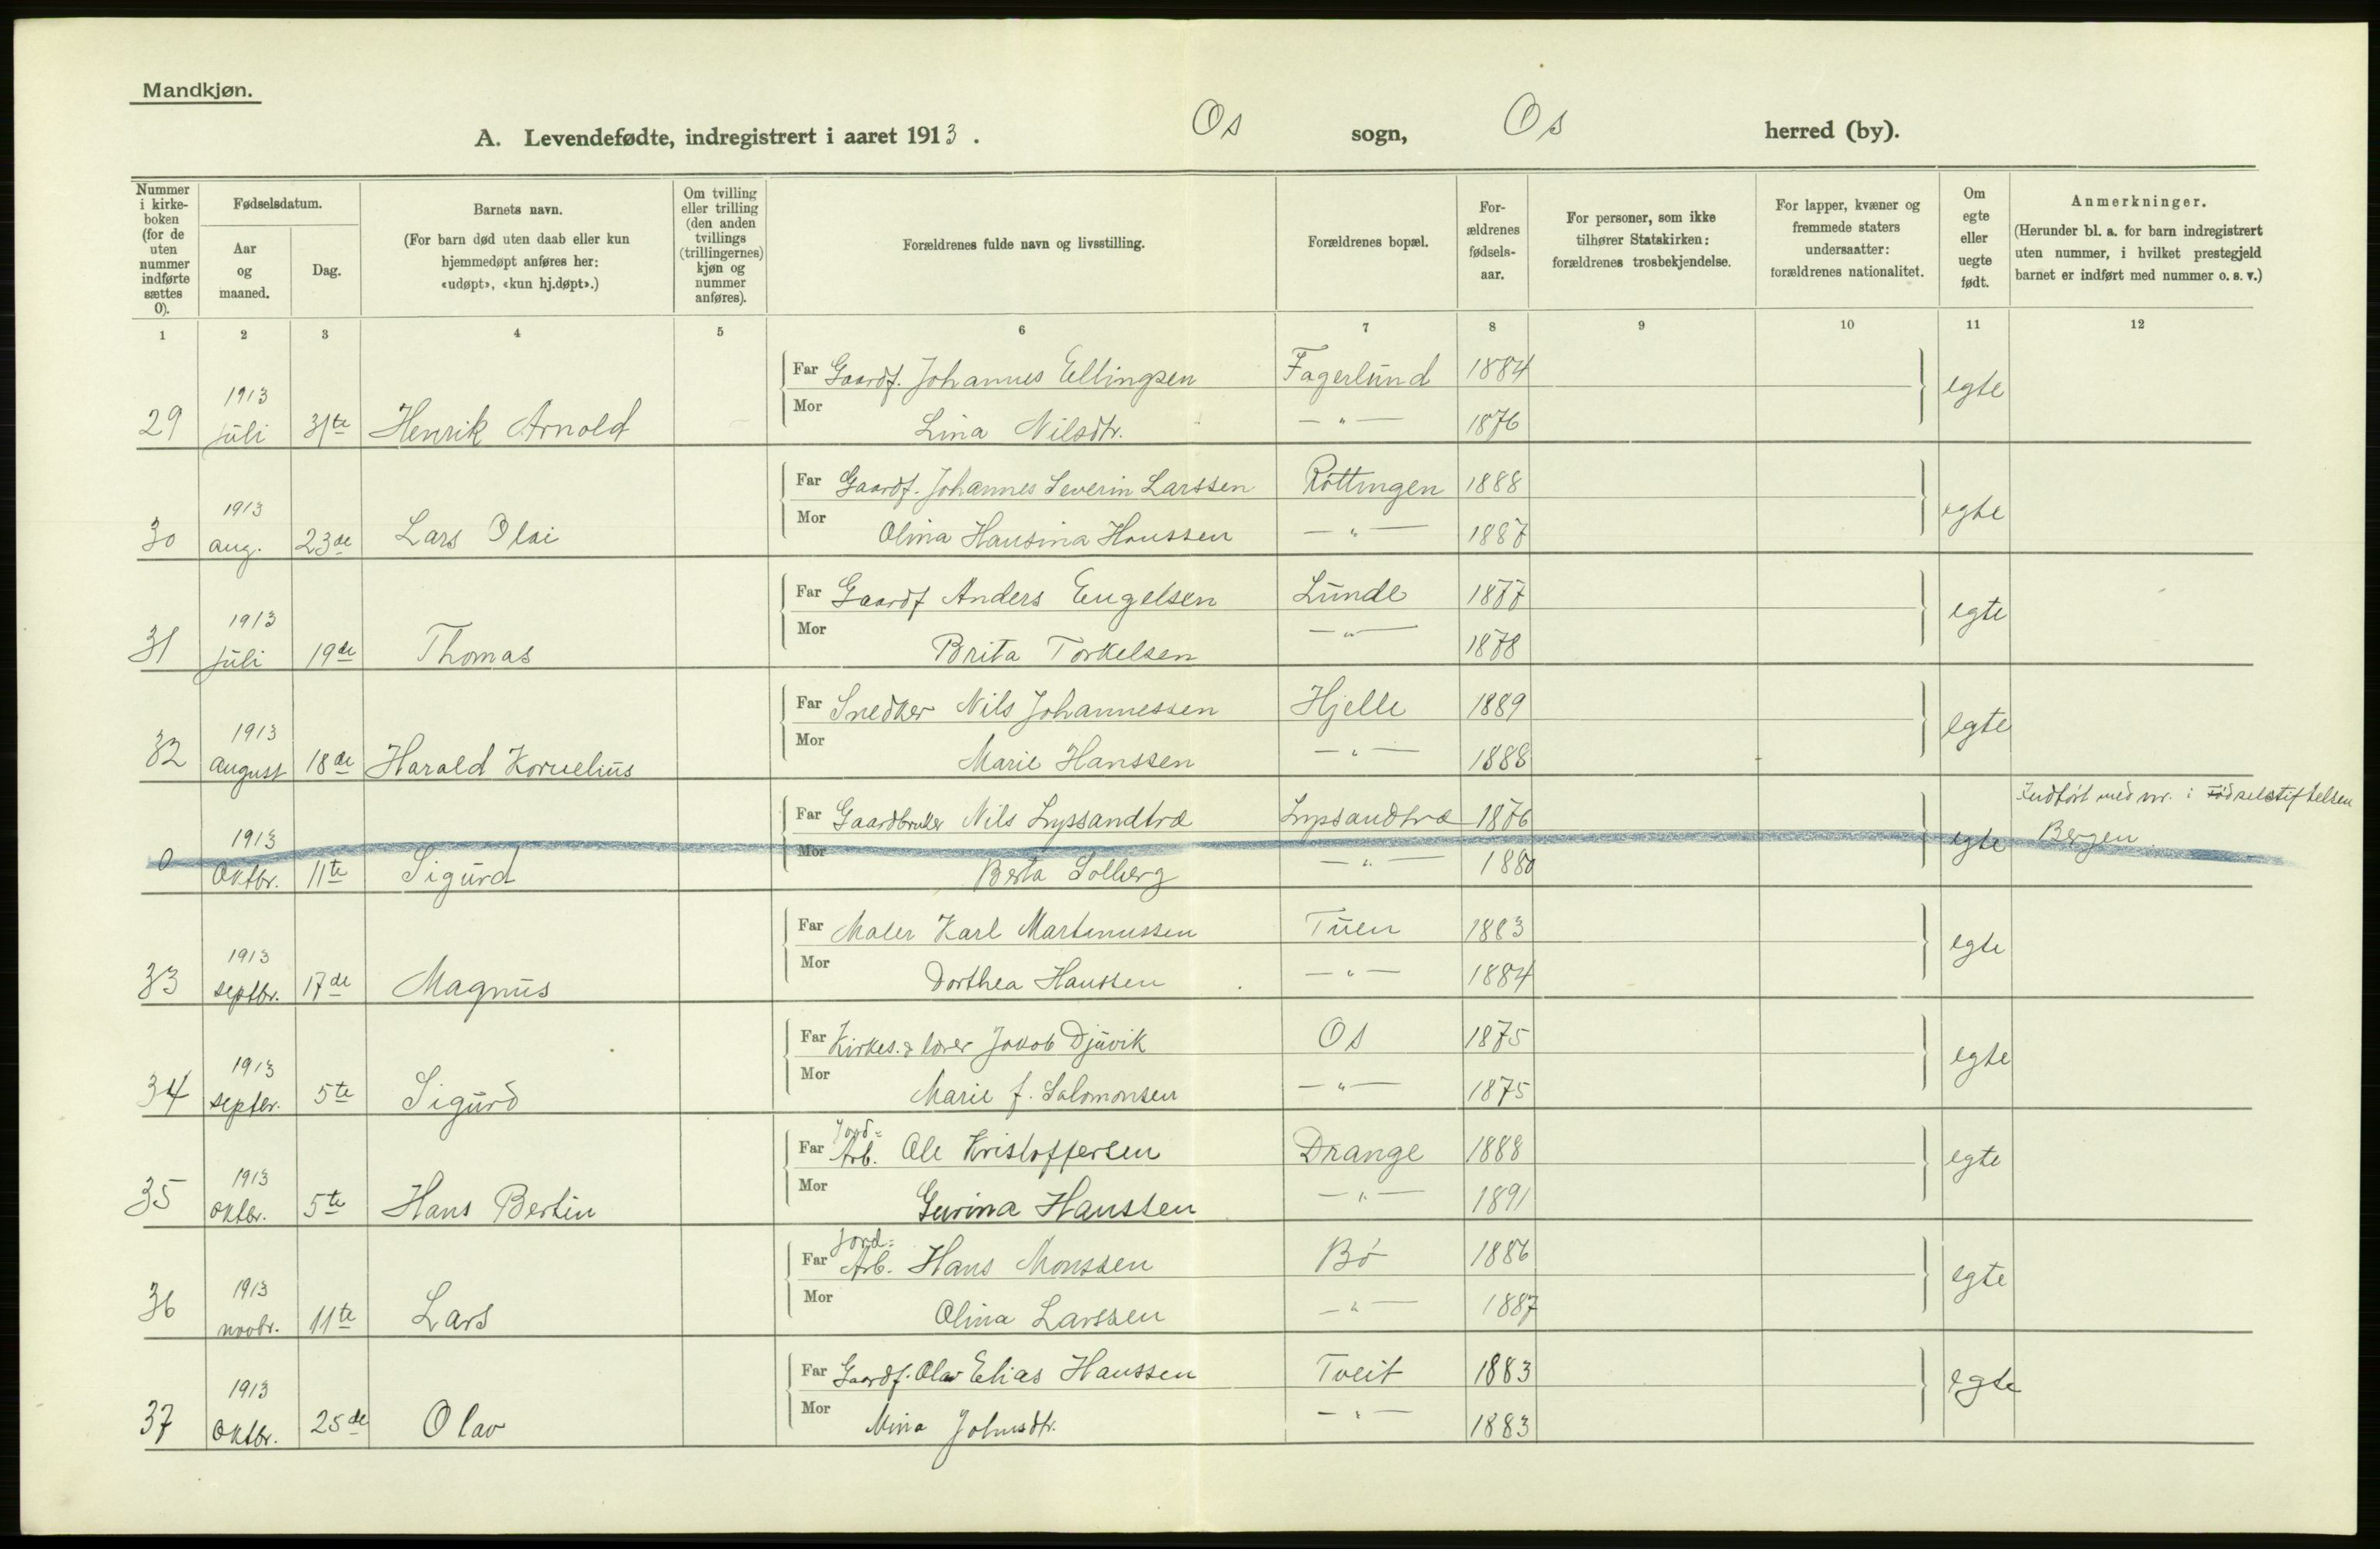 Mandkjøn.
A. Levendefødte, indregistrert i aaret 1913. Os sogn, Os herred (by).
Nummer i kirkeboken (for de uten nummer indførte sættes 0).
Fødselsdatum.
Aar og maaned.
Dag.
Barnets navn.
(For barn død uten daab eller kun hjemmedøpt anføres her: «udøpt», «kun hj.døpt».)
Om tvilling eller trilling (den anden tvillings (trillingernes) kjøn og nummer anføres).
Forældrenes fulde navn og livsstilling.
Forældrenes bopæl.
Forældrenes fødselsaar.
For personer, som ikke tilhører Statskirken: forældrenes trosbekjendelse.
For lapper, kvæner og fremmede staters undersaatter: forældrenes nationalitet.
Om egte eller uegte født.
Anmerkninger.
(Herunder bl. a. for barn indregistrert uten nummer, i hvilket prestegjeld barnet er indført med nummer o. s. v.)
1 2 3 4 5 6 7 8 9 10 11 12
Far Gaardf. Johannes Ellingsen Fagerlund 1884
29 1913 juli 31te Henrik Arnold egte
Mor Lina Nilsdtr. — " — 1876
Far Gaardf. Johannes Severin Larssen Röttingen 1888
30 1913 aug. 23de Lars Olai egte
Mor Olina Hansina Hanssen — " — 1887
Far Gaardf Anders Engelsen Lunde 1877
31 1913 juli 19de Thomas egte
Mor Brita Torkelsen — " — 1878
Far Snedker Nils Johannessen Hjelle 1889
32 1913 august 18de Harald Kornelius egte
Mor Marie Hanssen — " — 1888
Far Gaardbruker Nils Lyssandtræ Lyssandtræ 1876 Indført med nr. i Fødselsstiftelsen
0 1913 Oktbr. 11te Sigurd egte Bergen.
Mor Berta Solberg — " — 1880
Far Maler Karl Martinussen Tuen 1883
33 1913 septbr. 17de Magnus egte
Mor Dorthea Hanssen — " — 1884
Far Kirkes. & lærer Jakob Djuvik Os 1875
34 1913 septbr. 5te Sigurd egte
Mor Marie f. Salomonsen — " — 1875
Far Jord= Arb. Ole Kristoffersen Drange 1888
35 1913 oktbr. 5te Hans Bertin egte
Mor Gurina Hanssen — " — 1891
Far Jord= Arb. Hans Monssen Bø 1886
36 1913 novbr. 11te Lars egte
Mor Olina Larssen — " — 1887
Far Gaardf. Olav Elias Hanssen Tveit 1883
37 1913 Oktbr. 25de Olav egte
Mor Mina Johnsdtr. — " — 1883